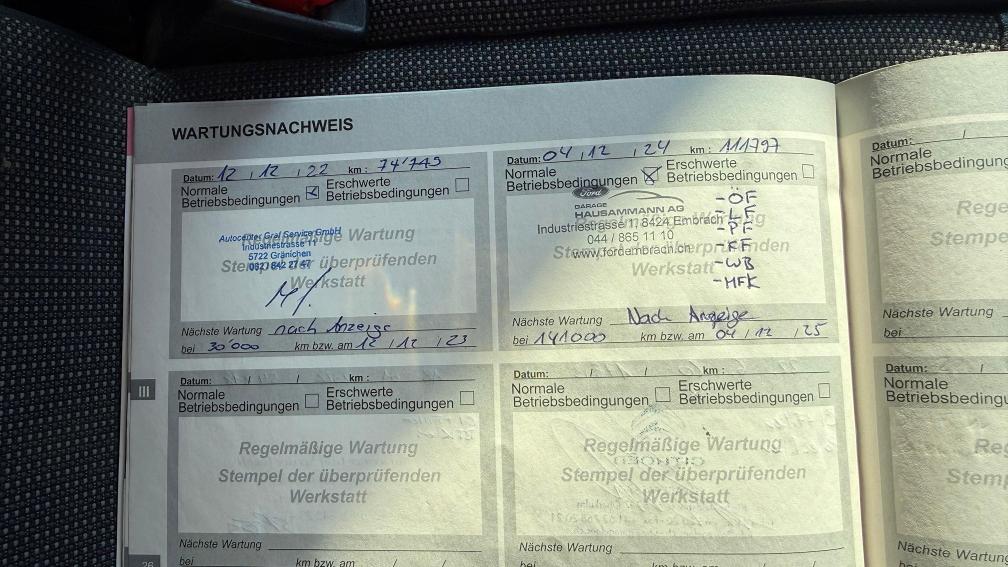 WARTUNGSNACHWEIS
Datum: 12 / 12 / 22 km : 74'745
Normale Betriebsbedingungen ☒ Erschwerte Betriebsbedingungen ☐
Regelmäßige Wartung
Stempel der überprüfenden
Werkstatt
Autocenter Graf Service GmbH
Industriestrasse 11
5722 Gränichen
062 / 842 27 47
Nächste Wartung nach Anzeige
bei 30'000 km bzw. am 12 / 12 / 23
Datum: 04 / 12 / 24 km : 111797
Normale Betriebsbedingungen ☒ Erschwerte Betriebsbedingungen ☐
Ford
GARAGE
HAUSAMMANN AG
Industriestrasse 1, 8424 Embrach
044 / 865 11 10
www.fordembrach.ch
Werkstatt
-ÖF
-LF
-PF
-KF
-WB
-MFK
Nächste Wartung Nach Anzeige
bei 141000 km bzw. am 04 / 12 / 25
III
Datum: / / km :
Normale Betriebsbedingungen ☐ Erschwerte Betriebsbedingungen ☐
Regelmäßige Wartung
Stempel der überprüfenden
Werkstatt
Nächste Wartung
bei km bzw. am / /
Datum: / / km :
Normale Betriebsbedingungen ☐ Erschwerte Betriebsbedingungen ☐
Regelmäßige Wartung
Stempel der überprüfenden
Werkstatt
Nächste Wartung
bei km bzw. am / /
26
Datum: /
Normale
Nächste Wartung
bei
Datum: /
Normale
Nächste Wartung